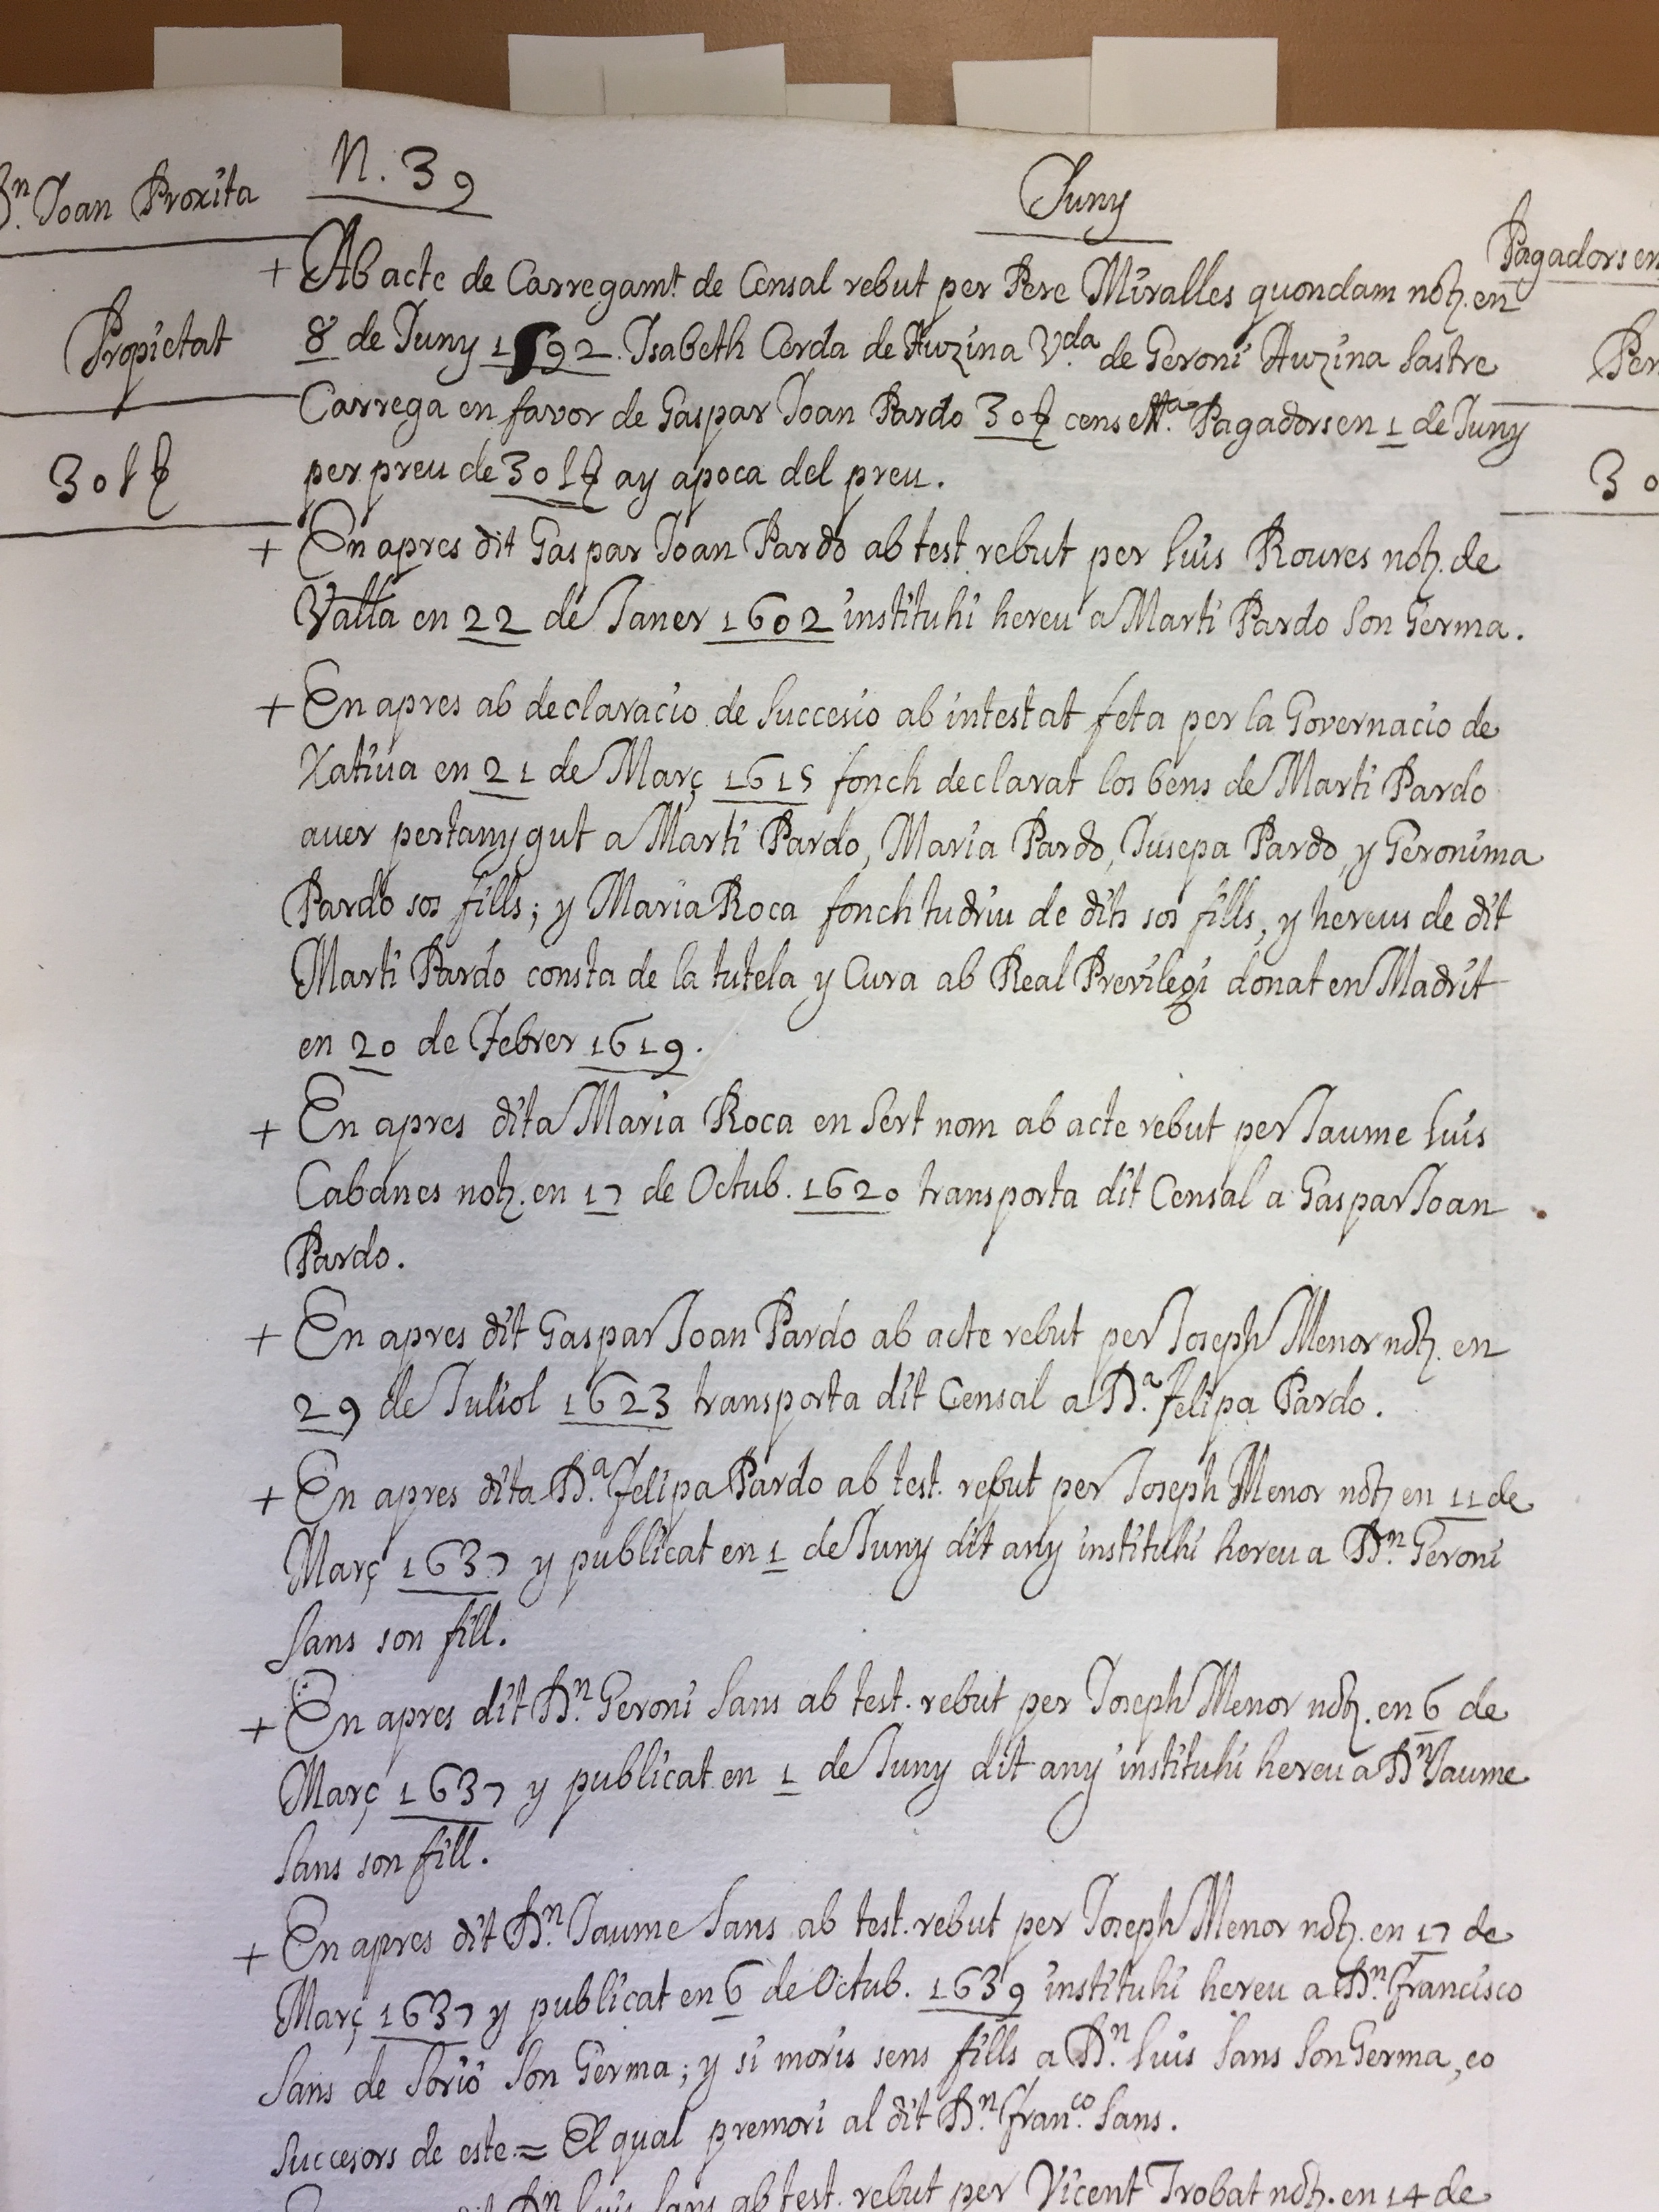 Dn. Joan Proxita
Propietat
30 l ₤
N. 39
Juny
+ Ab acte de Carregamt. de Censal rebut per Pere Miralles quondam noty. en
8 de Juny 1592. Isabeth Cerda de Auzina Vda. de Geroni Auzina Sastre
Carrega en favor de Gaspar Joan Pardo 30 ₤ cens Pagadors en 1 de Juny
per preu de 30 l ₤ ay apoca del preu.
+ En apres dit Gaspar Joan Pardo ab test. rebut per Luis Roures noty. de
Valla en 22 de Janer 1602 instituhi hereu a Marti Pardo Son Germa.
+ En apres ab declaracio de Succesio ab intestat feta per la Governacio de
Xativa en 21 de Març 1615 fonch declarat los bens de Marti Pardo
auer pertanygut a Marti Pardo, Maria Pardo, Jusepa Pardo, y Geronima
Pardo sos fills; y Maria Roca fonch tudriu de dits sos fills, y hereus de dit
Marti Pardo consta de la tutela y Cura ab Real Previlegi donat en Madrit
en 20 de Febrer 1619.
+ En apres dita Maria Roca en Sert nom ab acte rebut per Jaume Luis
Cabanes noty. en 17 de Octub. 1620 transporta dit Censal a Gaspar Joan
Pardo.
+ En apres dit Gaspar Joan Pardo ab acte rebut per Joseph Menor noty. en
29 de Juliol 1623 transporta dit Censal a Da. Felipa Pardo.
+ En apres dita Da. Felipa Pardo ab test. rebut per Joseph Menor noty. en 11 de
Març 1637 y publicat en 1 de Juny dit any instituhi hereu a Dn. Geroni
Sans son fill.
+ En apres dit Dn. Geroni Sans ab test. rebut per Joseph Menor noty. en 6 de
Març 1637 y publicat en 1 de Juny dit any instituhi hereu a Dn. Jaume
Sans son fill.
+ En apres dit Dn. Jaume Sans ab test. rebut per Joseph Menor noty. en 17 de
Març 1637 y publicat en 6 de Octub. 1639 instituhi hereu a Dn. Francisco
Sans de Sorio Son Germa; y si moris sens fills a Dn. Luis Sans Son Germa, eo
Succesors de este = El qual premori al dit Dn. Franco. Sans.
Dn. Luis Sans ab test. rebut per Vicent Trobat noty. en 14 de
Pagadors en
Per
30